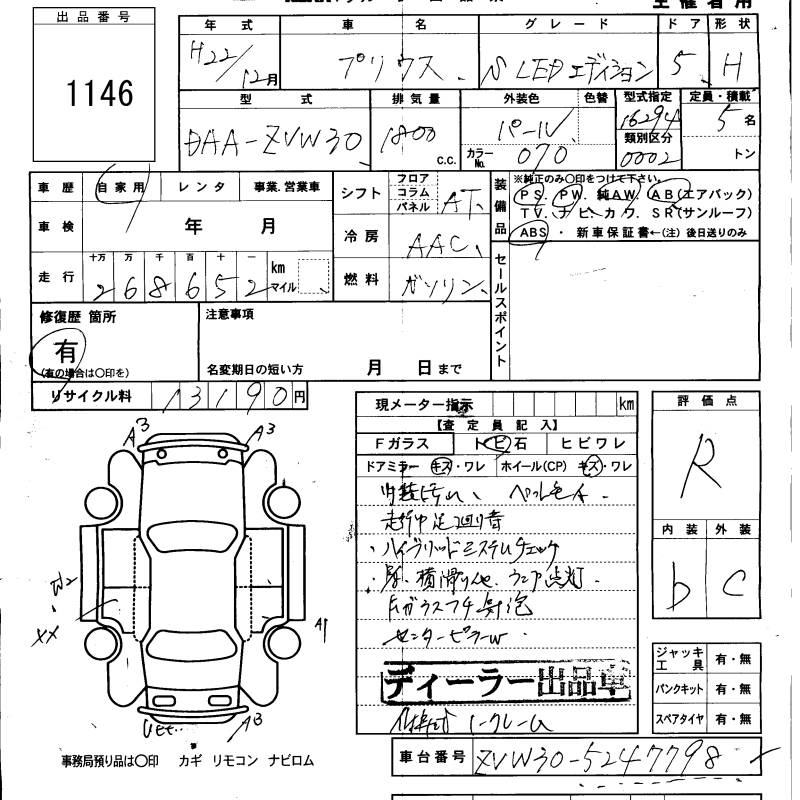 出品番号
1146
年式 車名 グレード ドア 形状
H22/12月 プリウス S LEDエディション 5 H
型式 排気量 外装色 色替 型式指定 定員・積載
DAA-ZVW30 1800 c.c. パール 16294 5名
カラーNo. 070 類別区分 0002 トン
車歴 自家用 レンタ 事業.営業車
シフト フロア コラム パネル AT
装備品 ※純正のみ〇印をつけて下さい。
PS. PW. 純AW. AB(エアバック)
TV. ナビ. カワ. SR(サンルーフ)
ABS ・ 新車保証書←(注) 後日送りのみ
車検 年 月
冷房 AAC
走行 十万 万 千 百 十 一
268652 km マイル
燃料 ガソリン
セールスポイント
修復歴 箇所
有
(有の場合は〇印を)
注意事項
名変期日の短い方 月 日まで
リサイクル料 13190円
現メーター指示 km
【査定員記入】
Fガラス トビ石 ヒビワレ
ドアミラー キズ・ワレ ホイール(CP) キズ・ワレ
評価点
R
内装 外装
b C
走行中足廻り音
ハイブリッドシステムチェック
点灯
センターピラーW
ディーラー出品車
A3 A3
W2
XX
A1
A3
ジャッキ工具 有・無
パンクキット 有・無
スペアタイヤ 有・無
事務局預り品は〇印 カギ リモコン ナビロム
車台番号 ZVW30-5247798